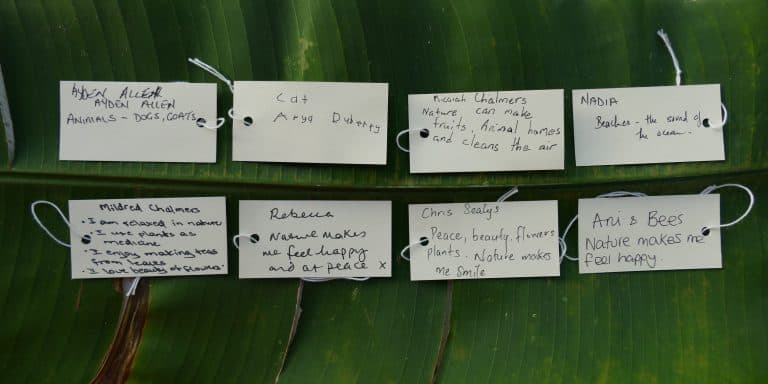 AYDEN ALLEN
AYDEN ALLEN
ANIMALS - DOGS, GOATS
Cat
Arya
Chalmers
Nature can make
fruits, Animal homes
and cleans the air
NADIA
Beaches - the sound of
the ocean.
Mildred Chalmers
• I am relaxed in nature
• I use plants as
medicine
• I enjoy making teas
from leaves
• I love beauty of flowers.
Rebecca
Nature makes
me feel happy
and at peace x
Chris Sealys
Peace, beauty, flowers
plants. Nature makes
me smile
Ani & Bees
Nature makes me
feel happy.